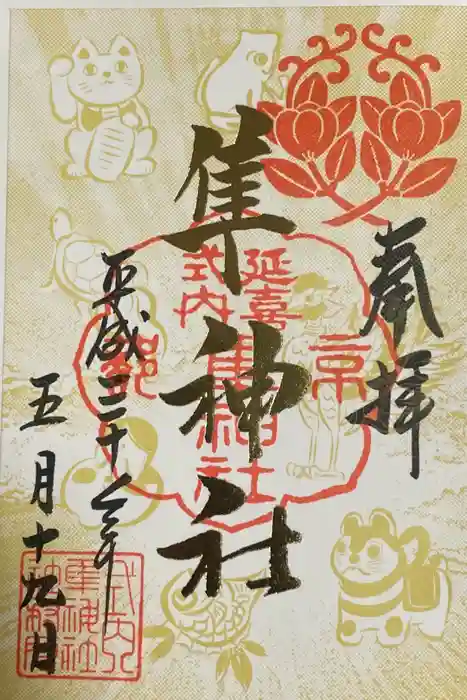 奉拝
隼神社
延喜
式内
京都
隼神社
平成二十八年
五月十九日
式内
隼神社